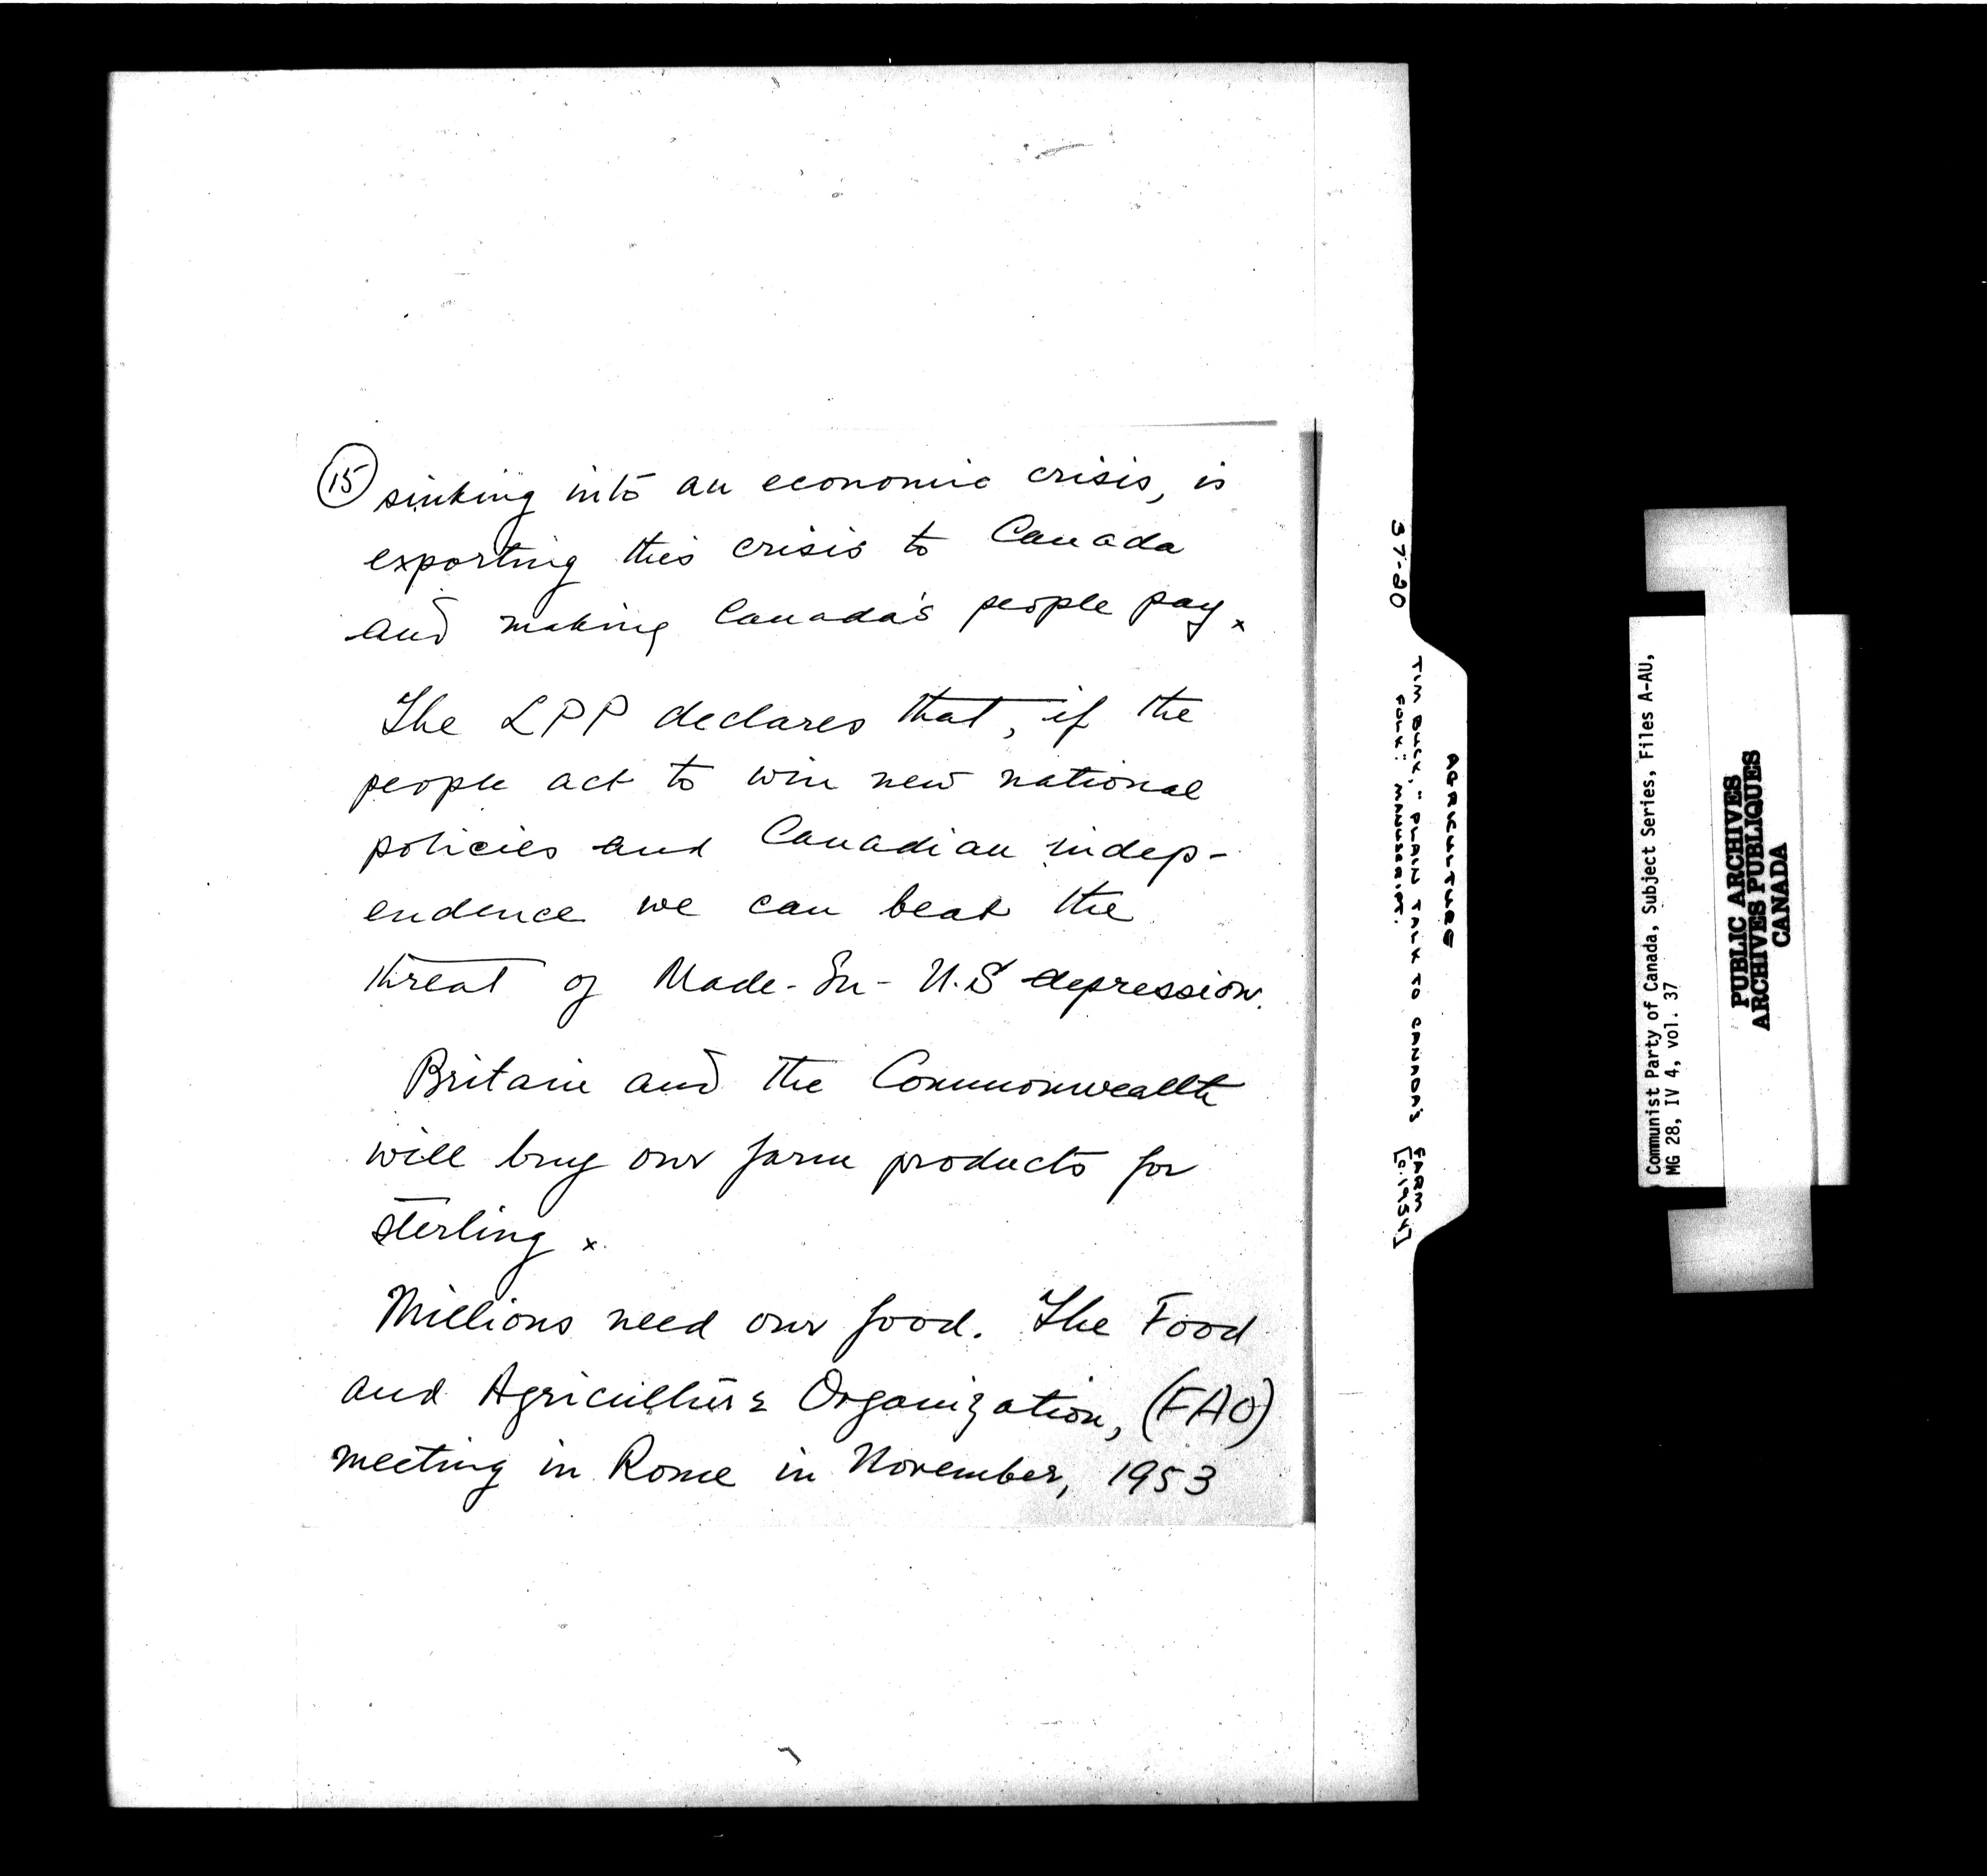 15 sinking into an economic crisis, is
exporting this crisis to Canada
and making Canada's people pay x
The LPP declares that, if the
people act to win new national
policies and Canadian indep-
endence we can beat the
threat of Made-In-U.S depression.
Britain and the Commonwealth
will buy our farm products for
sterling x
Millions need our food. The Food
and Agriculture Organization, (FAO)
meeting in Rome in November, 1953
AGRICULTURE
37-20 TIM BUCK, "PLAIN TALK TO CANADA'S FARM
FOLK: MANUSCRIPT. [c.1954]
Communist Party of Canada, Subject Series, Files A-AU,
MG 28, IV 4, vol. 37
PUBLIC ARCHIVES
ARCHIVES PUBLIQUES
CANADA